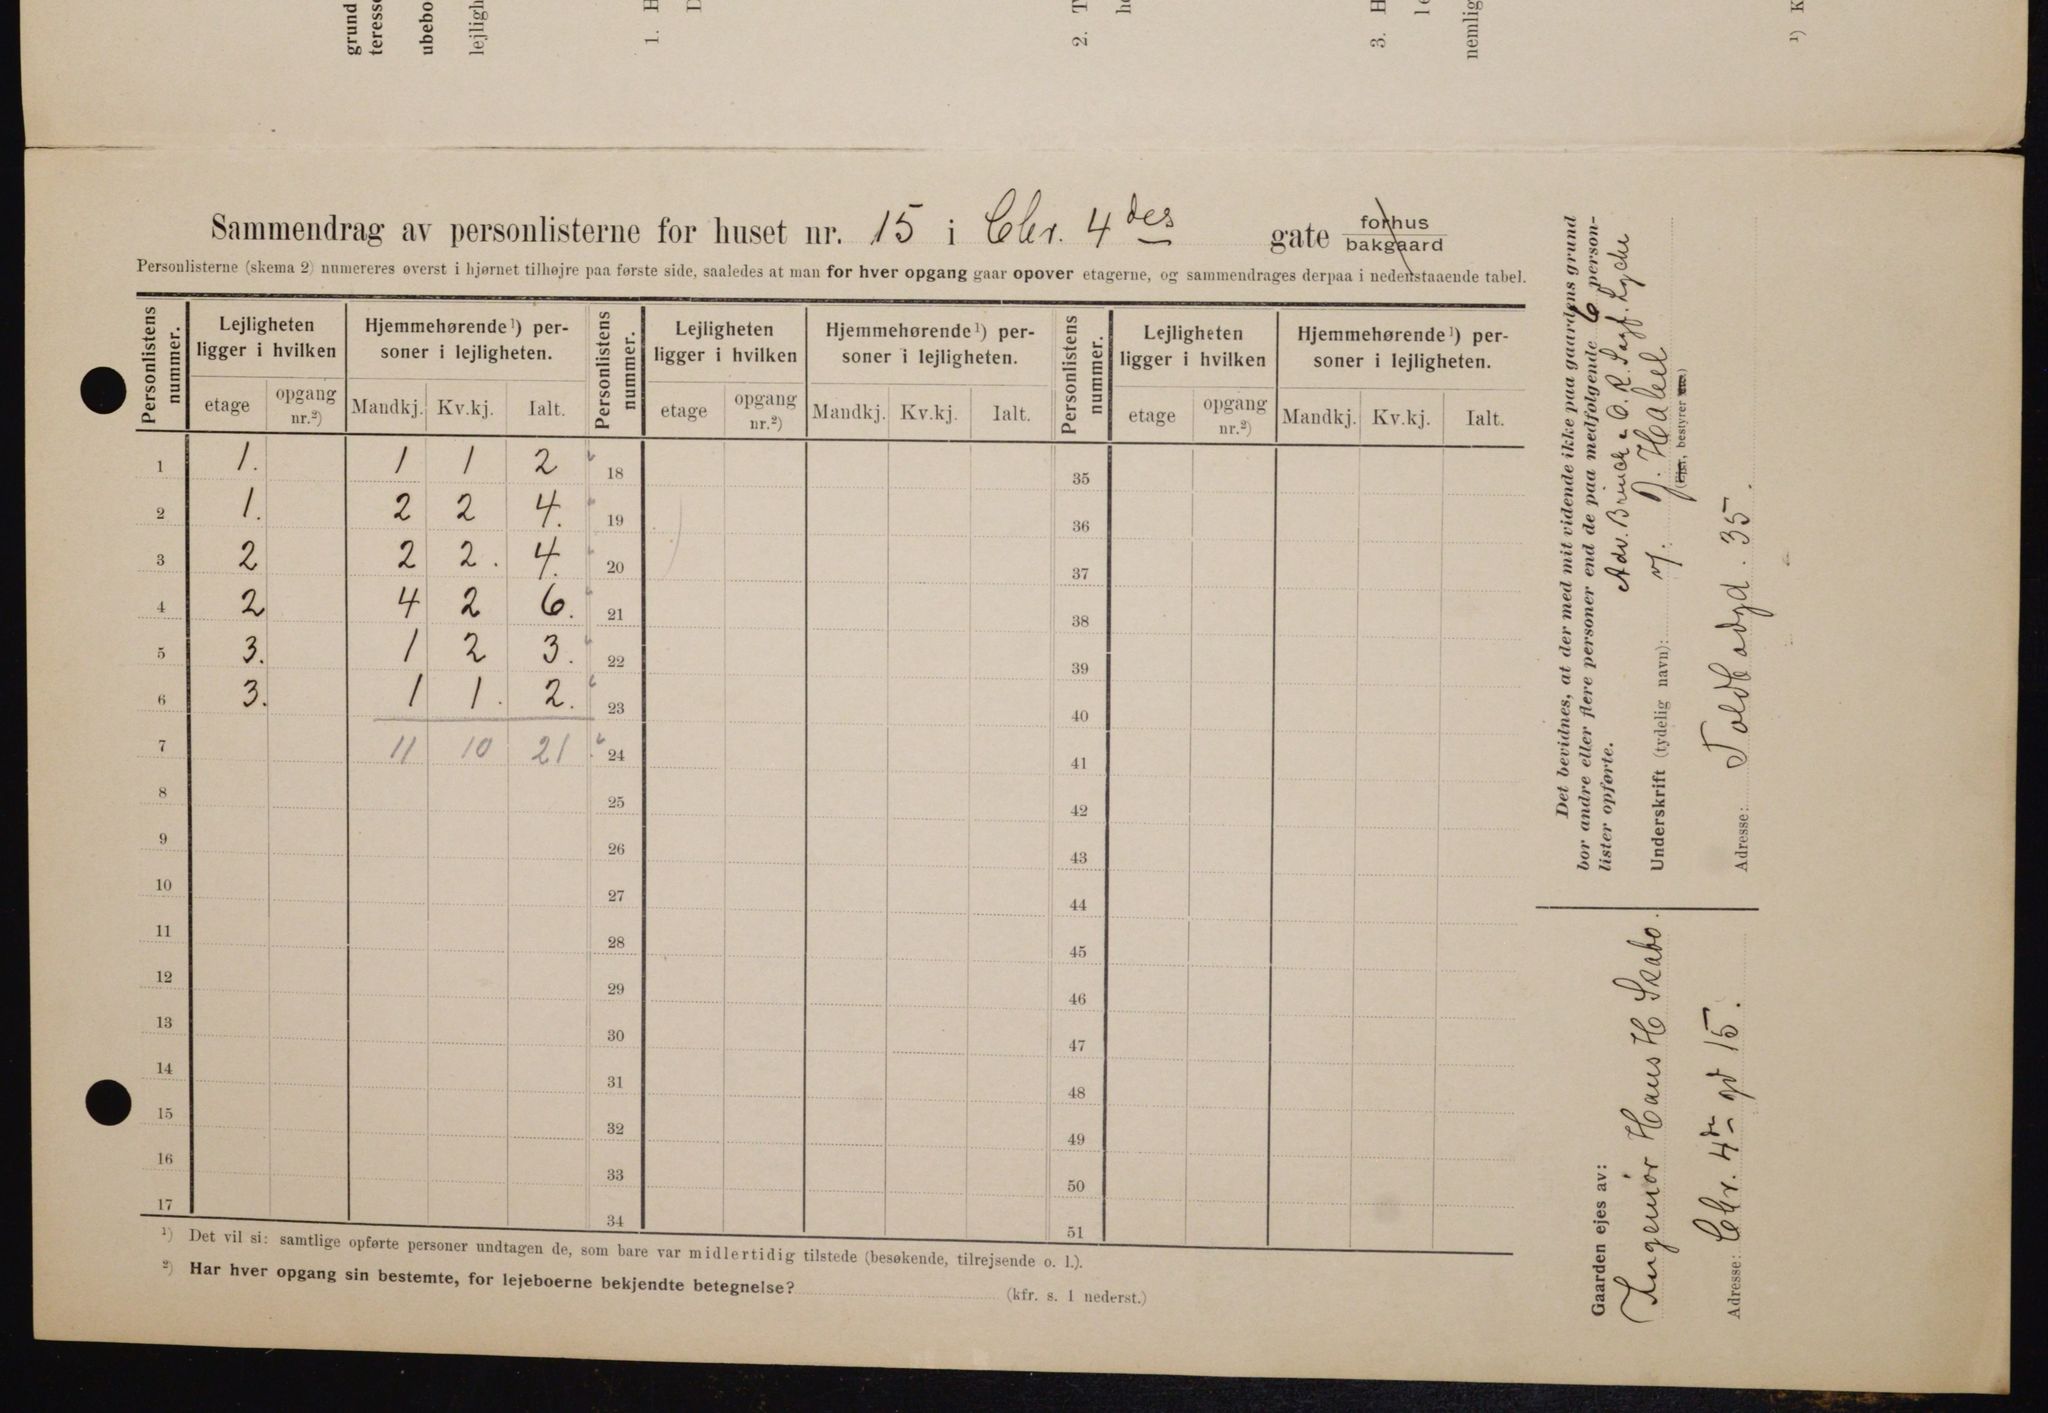 grund
teresse
ubebo
lejligh
1. H
D
2. T
he
3. H
le
nemlig
¹) K
Sammendrag av personlisterne for huset nr. 15 i Chr. 4 des gate forhus bakgaard
Personlisterne (skema 2) numereres øverst i hjørnet tilhøjre paa første side, saaledes at man for hver opgang gaar opover etagerne, og sammendrages derpaa i nedenstaaende tabel.
Personlistens nummer. Lejligheten ligger i hvilken Hjemmehørende¹) personer i lejligheten. Personlistens nummer. Lejligheten ligger i hvilken Hjemmehørende¹) personer i lejligheten. Personlistens nummer. Lejligheten ligger i hvilken Hjemmehørende¹) personer i lejligheten.
etage opgang nr.²) Mandkj. Kv.kj. Ialt. etage opgang nr.²) Mandkj. Kv.kj. Ialt. etage opgang nr.²) Mandkj. Kv.kj. Ialt.
1 1. 1 1 2 18 35
2 1. 2 2 4. 19 36
3 2 2 2. 4. 20 37
4 2 4 2 6. 21 38
5 3. 1 2 3. 22 39
6 3. 1 1. 2. 23 40
7 11 10 21 24 41
8 25 42
9 26 43
10 27 44
11 28 45
12 29 46
13 30 47
14 31 48
15 32 49
16 33 50
17 34 51
¹) Det vil si: samtlige opførte personer undtagen de, som bare var midlertidig tilstede (besøkende, tilrejsende o. l.).
²) Har hver opgang sin bestemte, for lejeboerne bekjendte betegnelse? (kfr. s. 1 nederst.)
Det bevidnes, at der med mit vidende ikke paa gaardens grund
bor andre eller flere personer end de paa medfølgende 6 person-
lister opførte.
Adv. Brinch & O. R. Sagf. Lyche
Underskrift (tydelig navn): v/. J. Habel
(Ejer, bestyrer etc.)
Adresse: Toldbodgd. 35.
Gaarden ejes av:
Ingeniør Hans H Szabo.
Adresse: Chr. 4de gd 15.